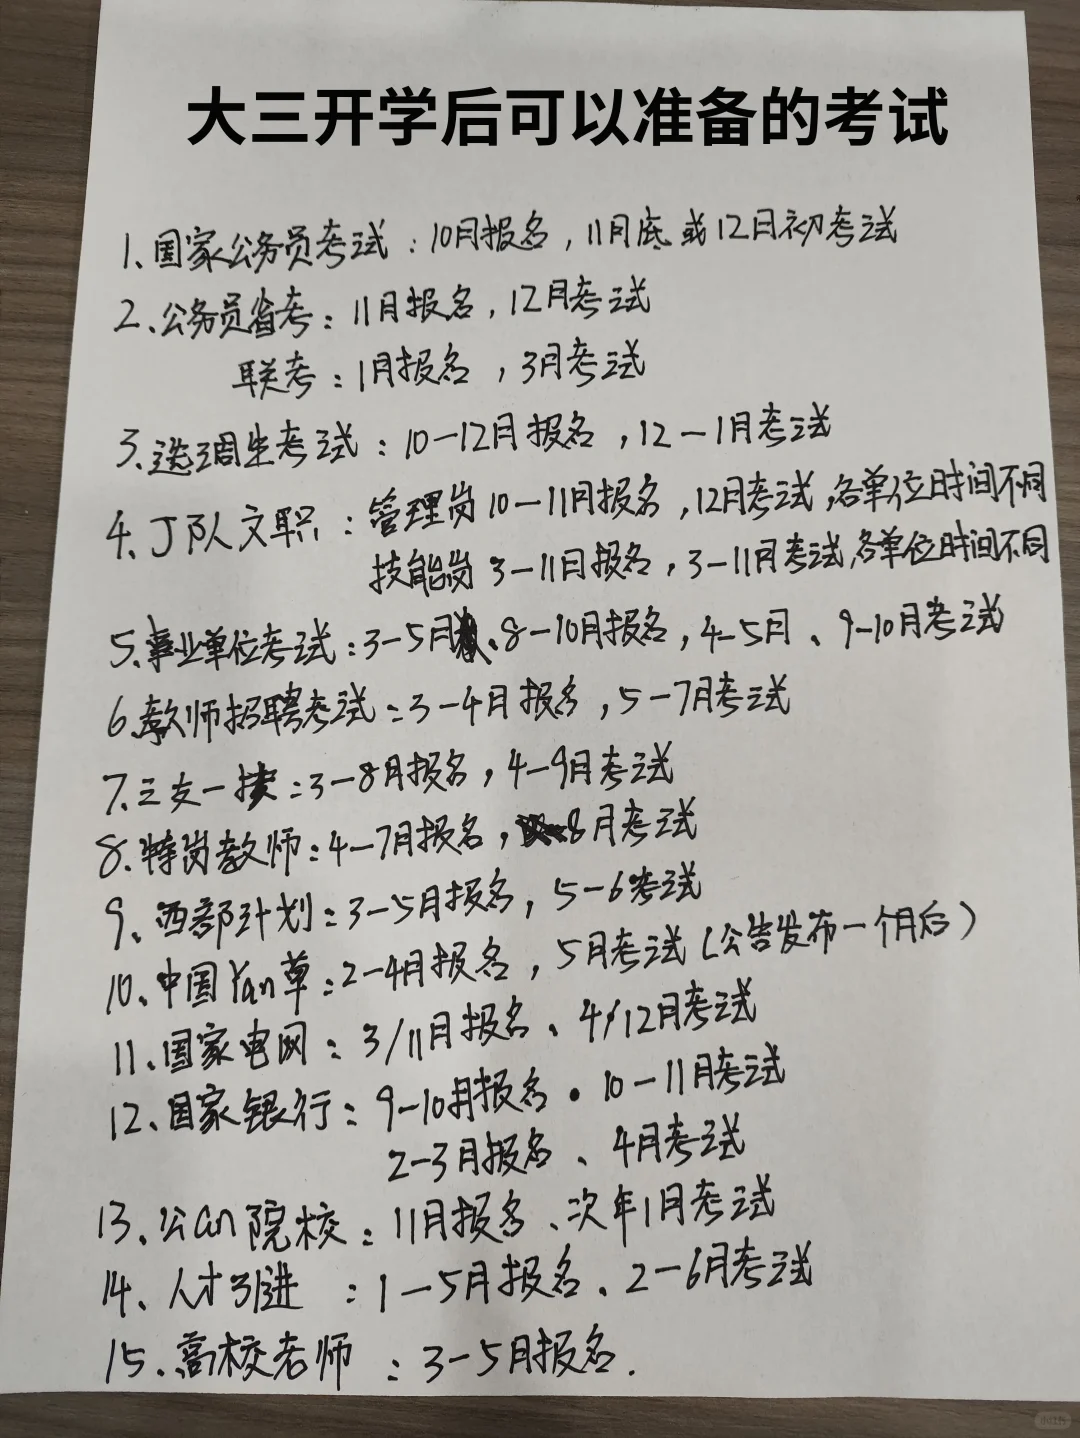 大三开学后可以准备的考试
1、国家公务员考试：10月报名，11月底或12日初考试
2、公务员省考：11月报名，12月考试
联考：1月报名，3月考试
3、选调生考试：10-12月报名，12-1月考试
4、J队文职：管理岗10-11月报名，12月考试，各单位时间不同
技能岗3-11日报名，3-11月考试，各单位时间不同
5、事业单位考试：3-5月、8-10月报名，4-5月、9-10月考试
6、教师招聘考试：3-4月报名，5-7月考试
7、三支一扶：3-8月报名，4-9月考试
8、特岗教师：4-7月报名，8月考试
9、西部计划：3-5月报名，5-6考试
10、中国Yan草：2-4月报名，5月考试（公告发布一个月后）
11、国家电网：3/11月报名、4/12月考试
12、国家银行：9-10月报名·10-11月考试
2-3月报名、4月考试
13、公an院校：11月报名、次年1月考试
14、人才引进：1-5月报名、2-6月考试
15、高校老师：3-5月报名.